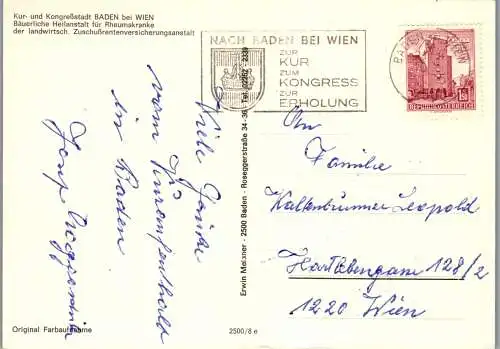 Kur- und Kongreßstadt BADEN bei WIEN
Bäuerliche Heilanstalt für Rheumakranke
der landwirtsch. Zuschußrentenversicherungsanstalt
NACH BADEN BEI WIEN
ZUR
KUR
ZUM
KONGRESS
ZUR
ERHOLUNG
REPUBLIK ÖSTERREICH
Viele Grüße
vom Kuraufenthalt
in Baden
Josef
Erwin Meixner - 2500 Baden - Roseggerstraße 34-36 Tel.
An
Familie
Kaltenbrunner Leopold
Hartlebengasse 128/2
1220 Wien
Original Farbaufnahme
2500/8 e